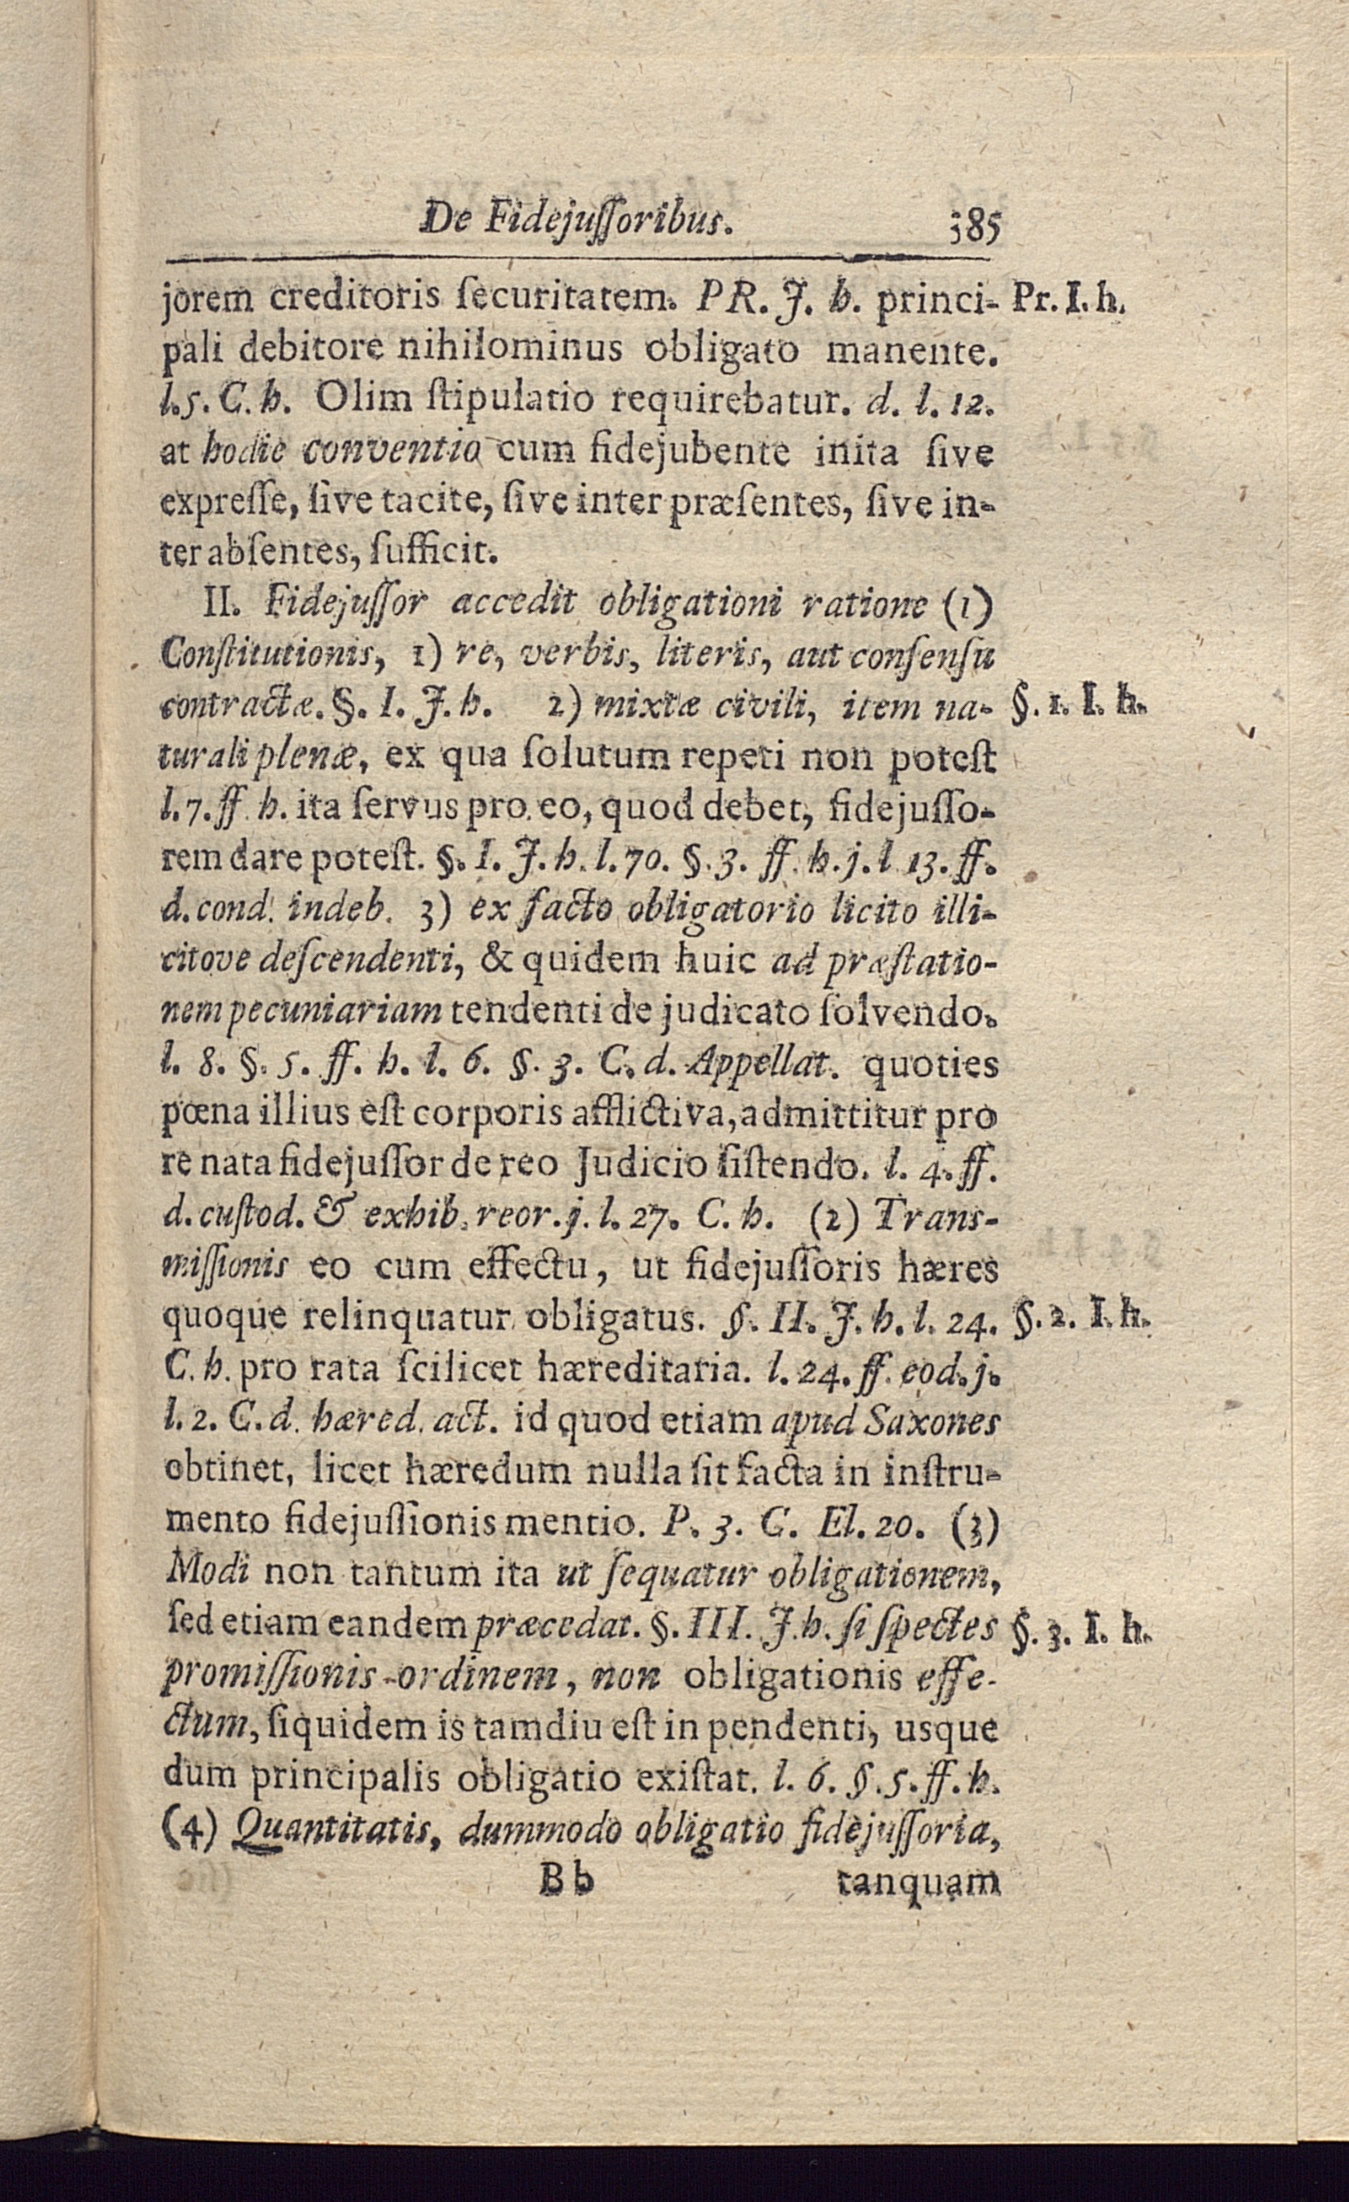 De Fidejuſſoribus. 385
jorem creditoris ſecuritatem. PR. J. h. princi- Pr. I. h.
pali debitore nihilominus obligato manente.
l. 5. C. h. Olim ſtipulatio requirebatur. d. l. 12.
at hodie conventio cum fidejubente inita ſive
expreſſe, ſive tacite, ſive inter præſentes, ſive in-
ter abſentes, ſufficit.
II. Fidejuſſor accedit obligationi ratione (1)
Conſtitutionis, 1) re, verbis, literis, aut conſenſu
contractæ. §. I. J. h. 2) mixtæ civili, item na- §. 1. I. h.
turali plenæ, ex qua ſolutum repeti non poteſt
l. 7. ff. h. ita ſervus pro eo, quod debet, fidejuſſo-
rem dare poteſt. §. I. J. h. l. 70. §. 3. ff. h. j. l. 13. ff.
d. cond. indeb. 3) ex facto obligatorio licito illi-
citove deſcendenti, & quidem huic ad præſtatio-
nem pecuniariam tendenti de judicato ſolvendo.
l. 8. §. 5. ff. h. l. 6. §. 3. C. d. Appellat. quoties
pœna illius eſt corporis afflictiva, admittitur pro
re nata fidejuſſor de reo Judicio ſiſtendo. l. 4. ff.
d. cuſtod. & exhib. reor. j. l. 27. C. h. (2) Trans-
miſſionis eo cum effectu, ut fidejuſſoris hæres
quoque relinquatur obligatus. §. II. J. h. l. 24. §. 2. I. h.
C. h. pro rata ſcilicet hæreditaria. l. 24. ff. eod. j.
l. 2. C. d. hæred. act. id quod etiam apud Saxones
obtinet, licet hæredum nulla ſit facta in inſtru-
mento fidejuſſionis mentio. P. 3. C. El. 20. (3)
Modi non tantum ita ut ſequatur obligationem,
ſed etiam eandem præcedat. §. III. J. h. ſi ſpectes §. 3. I. h.
promiſſionis ordinem, non obligationis effe-
ctum, ſiquidem is tamdiu eſt in pendenti, usque
dum principalis obligatio exiſtat. l. 6. §. 5. ff. h.
(4) Quantitatis, dummodo obligatio fidejuſſoria,
Bb tanquam